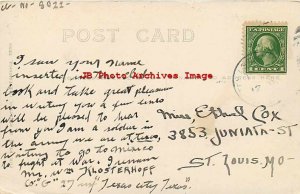 N-MI-9021-
POST CARD
JB Photo Archives Image
I saw your name
inserted in the
book and take great pleasure
in writing you a few lines
will be pleased to hear
from you I am a soldier in
the army we are at
waiting to go to Mexico
to fight it war. I remain
Mr, W.m KLOSTERHOFF
Co "G" 27 inf "Texas City Texas".
Miss Ethel Cox
3853 JUNIATA-ST
ST. LOUIS, MO-